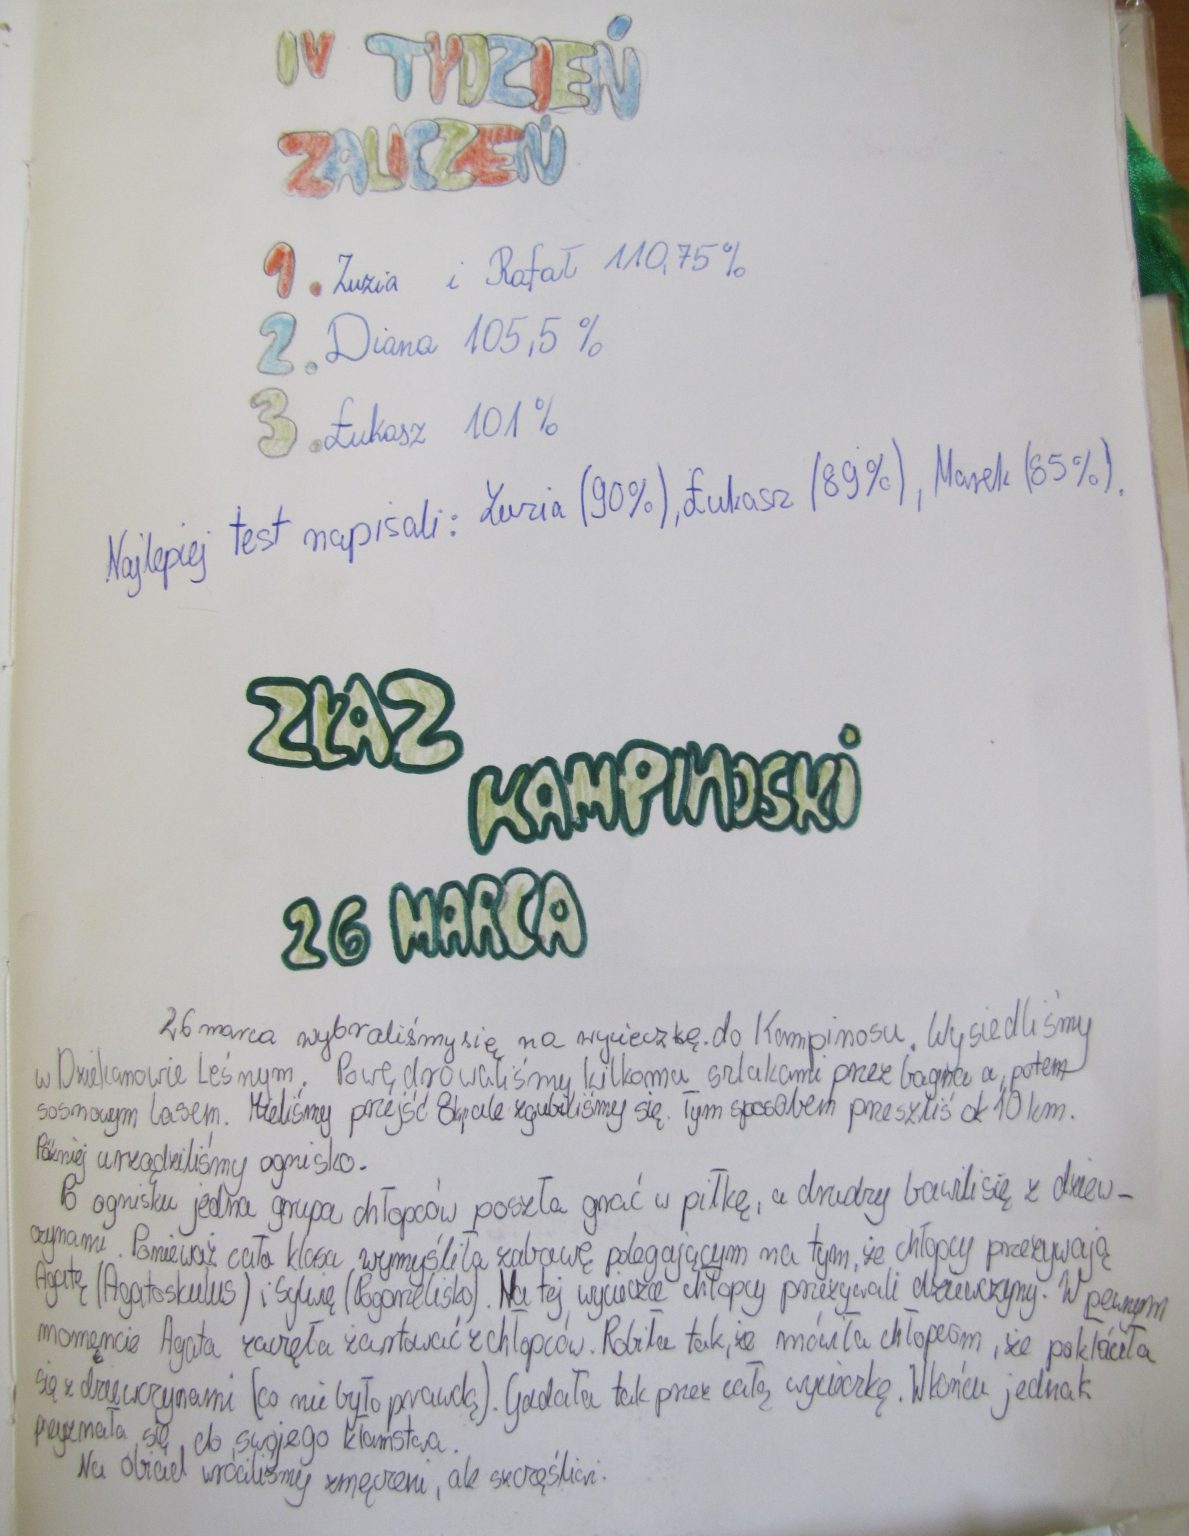 IV TYDZIEŃ
ZALICZEŃ
1. Zuzia i Rafał 110,75%
2. Diana 105,5%
3. Łukasz 101%
Najlepiej test napisali: Zuzia (90%), Łukasz (89%), Marek (85%).
ZŁAZ
KAMPINOSKI
26 MARCA
26 marca wybraliśmy się na wycieczkę do Kampinosu. Wysiedliśmy
w Dziekanowie Leśnym. Powędrowaliśmy kilkoma szlakami przez bagna a, potem
sosnowym lasem. Mieliśmy przejść 8km ale zgubiliśmy się. Tym sposobem przeszliś ok 10 km.
Później urządziliśmy ognisko.
Po ognisku jedna grupa chłopców poszła grać w piłkę, a drudzy bawili się z dziew-
czynami. Ponieważ cała klasa wymyśliła zabawę polegającym na tym, że chłopcy przezywają
Agatę (Agatoskulus) i Sylwię (Pogorzelisko). Na tej wycieczce chłopcy przezywali dziewczyny. W pewnym
momencie Agata zaczęła żartować z chłopców. Robiła tak, że mówiła chłopcom, że pokłóciła
się z dziewczynami (co nie było prawdą). Gadała tak przez całą wycieczkę. W końcu jednak
przyznała się do swojego kłamstwa.
Na obiad wróciliśmy zmęczeni, ale szczęśliwi.